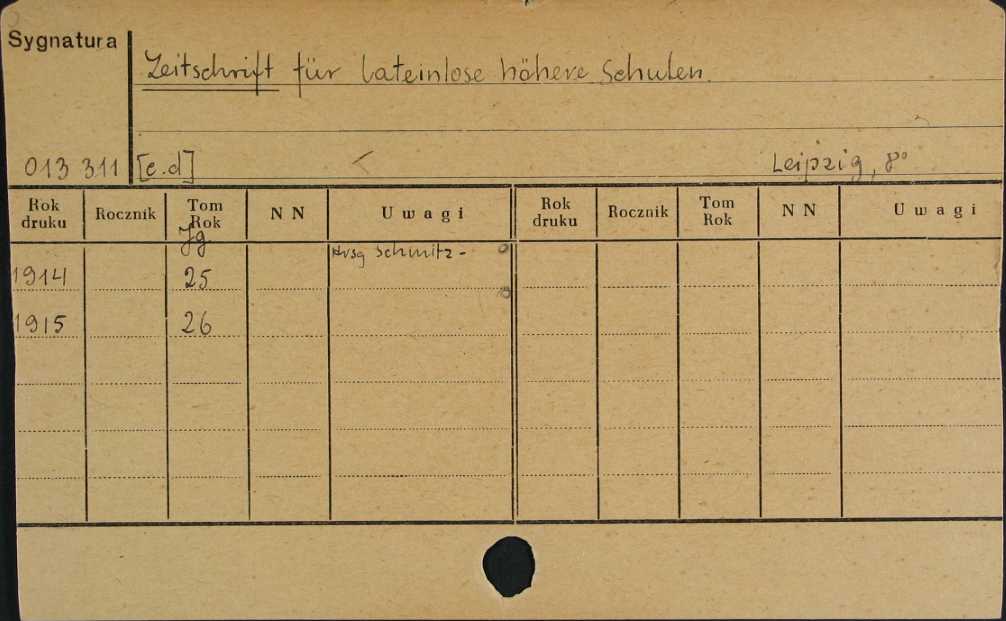 Sygnatura
Zeitschrift für lateinlose höhere Schulen.
013 311 [c.d] < Leipzig, 8°
Rok druku Rocznik Tom Rok N N Uwagi Rok druku Rocznik Tom Rok N N Uwagi
Jg Hrsg Schmitz-
1914 25
1915 26